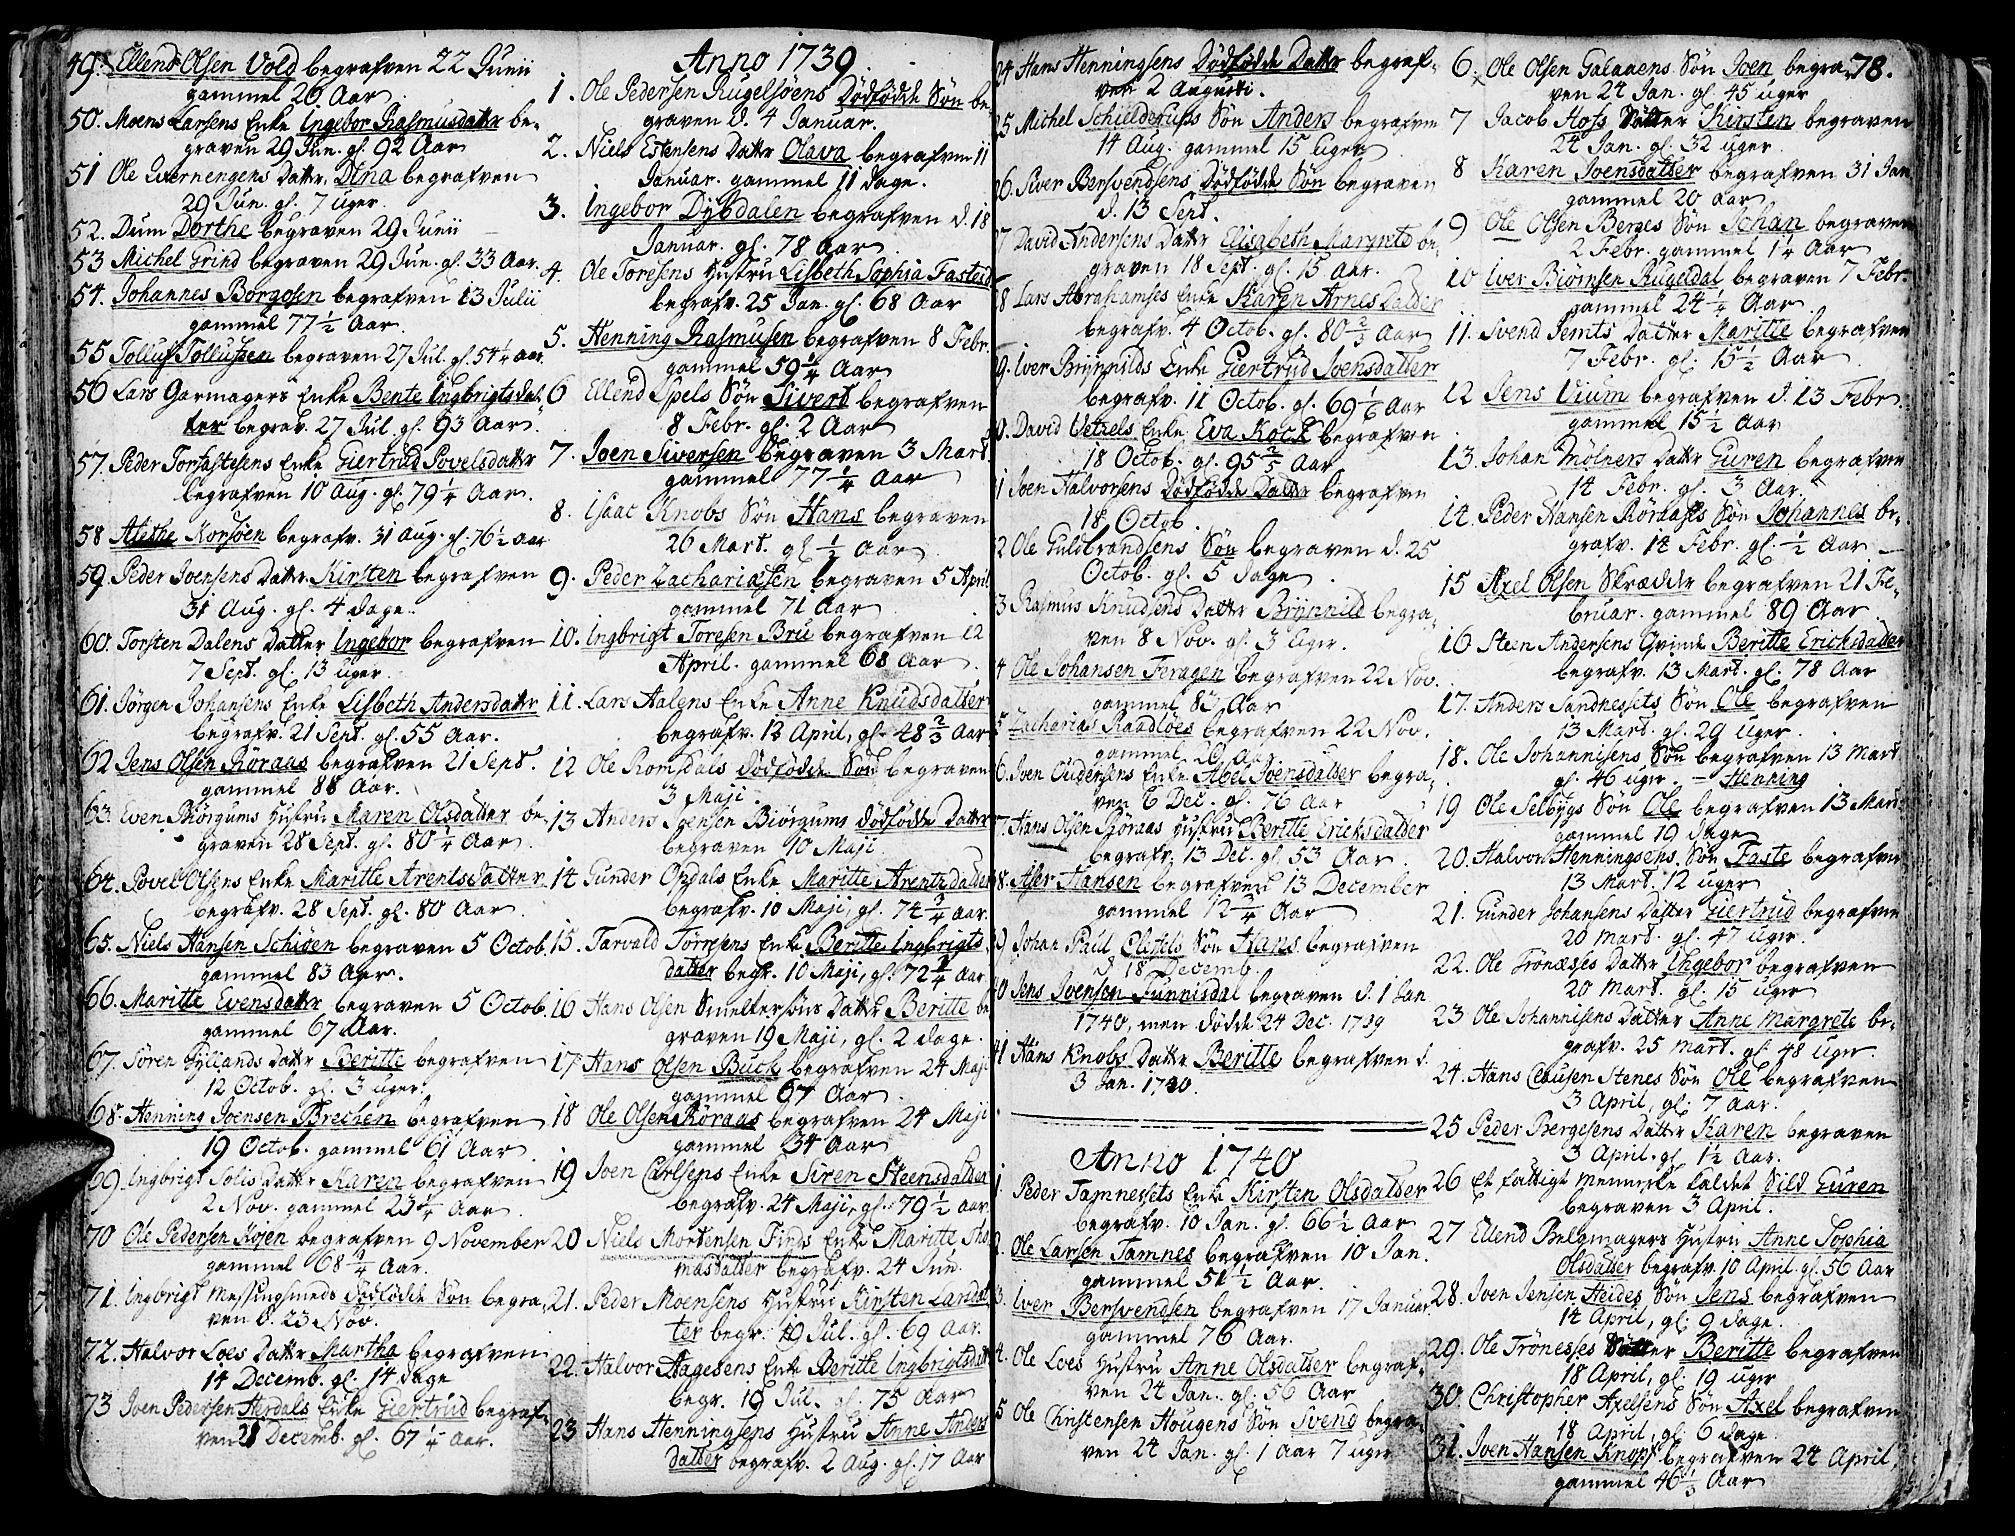 49. Ellend Olsen Vold begrafven 22 Junii
gammel 26 Aar
50. Moens Larsens Enke Ingebor Rasmusdattr be-
graven 29 Jun. gl. 92 Aar
51 Ole Evernengens Dattr. Dina begrafven
29 Jun. gl. 7 uger.
52. Dum Dorthe begraven 29 Junii
53 Michel Grind begraven 29 Jun. gl. 33 Aar.
54. Johannes Borgosen begrafven 13 Julii
gammel 77 1/2 Aar.
55 Tolluf Tollufsen begraven 27 Jul. gl. 54 1/4 aar.
56 Lars Garmagers Enke Bente Ingbrigtsdat-
ter begrav. 27 Jul. gl. 93 Aar.
57. Peder Torfastesens Enke Giertrud Povelsdattr
begrafven 10 Aug. gl. 79 1/4 Aar.
58 Alethe Korsøen begrafv. 31 Aug. gl. 76 1/2 aar
59. Peder Joensens Dattr. Kirsten begrafven
31 Aug. gl. 4 dage.
60. Torsten Dalens Datter Ingebor begrafven
7 Sept. gl. 13 uger
61. Jørgen Johansens Enke Lisbeth Andersdattr
begrafv. 21 Sept. gl. 55 Aar.
62 Jens Olsen Røraas begrafven 21 Sept.
gammel 88 Aar.
63. Even Rhørgums Hustru Maren Olsdatter be-
graven 28 Sept. gl. 80 1/4 Aar
64. Povel Olsens Enke Maritte Arentsdatter
begrafv. 28 Sept. gl. 80 Aar
65. Niels Hansen Schiøen begraven 5 Octob.
gammel 83 Aar.
66. Maritte Evensdattr begraven 5 Octob.
gammel 67 Aar.
67. Søren Gyllands Dattr Beritte begrafven
12 Octob. gl. 3 uger.
68. Henning Joensen Brechen begrafven
19 Octob. gammel 61 Aar
69 Ingbrigt Solis Dattr Karen begrafven
2 Nov. gammel 23 1/4 Aar
70 Ole Pedersen Kojen begrafven 9 November
gammel 68 3/4 Aar.
71. Ingbrigt Messingsmeds dødfødde Søn begra-
ven d. 23 Nov.
72. Halvor Loes Dattr Martha begrafven
14 Decemb. gl. 14 dage
73 Joen Pedersen Herdals Enke Giertrud begraf-
ven 21 Decemb. gl. 67 1/4 Aar.
Anno 1739.
1. Ole Pedersen Rugelsøens Dødfødde Søn be-
graven d. 4 Januar.
2. Niels Estensens Dattr Olava begrafven 11
Januar. gammel 11 dage.
3. Ingebor Dybdalen begrafven d. 18
Januar. gl. 78 Aar
4. Ole Toresens Hustru Lisbeth Sophia Fastad
begrafv. 25 Jan. gl. 68 Aar
5. Henning Rasmusen begrafven 8 Febr.
gammel 59 1/4 Aar
6 Ellend Spels Søn Sivert begrafven
8 Febr. gl. 2 Aar
7. Joen Siversen begraven 3 Mart.
gammel 77 1/4 Aar
8. Isaac Knobs Søn Hans begraven
26 Mart. gl 1/2 Aar
9. Peder Zachariasen begraven 5 April
gammel 71 Aar
10. Ingbrigt Toresen Bru begrafven 12
April. gammel 68 Aar
11. Lars Aalens Enke Anne Knudsdatter
begrafv. 12 April, gl. 48 2/3 Aar
12 Ole Romsdals dødfødde Søn begraven
3 Maji.
13 Anders Joensen Biørgums dødfødde Dattr
begraven 10 Maji.
14 Gunder Opdals Enke Maritte Arentzdatter
begrafv. 10 Maji, gl. 74 3/4 aar.
15. Tarvald Torresens Enke Beritte Ingbrigts
datter begr. 10 Maji, gl. 72 1/4 Aar
16 Hans Olsen Smeltersøns Dattr Beritte be
graven 19 Maji, gl. 2 dage
17 Hans Olsen Buck begrafven 24 Maji
gammel 67 Aar
18 Ole Olsen Røraas begrafven 24 Maji
gammel 34 Aar
19 Joen Carlsens Enke Siren Steensdatter
begrafv. 24 Maji, gl. 79 1/2 aar.
20 Niels Mortensen Finds Enke Maritte Tho
masdatter begrafv. 24 Jun.
21. Peder Moensens Hustru Kirsten Larsdat
ter begr. 19 Jul. gl. 69 Aar.
22. Halvor Aagesens Enke Beritte Ingbrigtsdatt
begr. 19 Jul. gl. 75 Aar
23 Hans Henningsens Hustru Anne Anders
datter begrafv. 2 Aug. gl. 17 Aar
24 Hans Henningsens Dødfødde Dattr begraf-
ven 2 Augusti.
25 Michel Schielderups Søn Anders begrafven
14 Aug. gammel 15 uger
26. Siver Bersvendsens Dødfødde Søn begraven
d. 13 Sept.
7 David Andersens Dattr Elisabeth Margrete be-
graven 18 Sept. gl. 15 Aar.
8 Lars Abrahamses Enke Karen Arnesdatter
begrafv. 4 Octob. gl. 80 2/3 Aar
9. Iver Brynnilds Enke Giertrud Joensdatter
begrafv. 11 Octob. gl. 69 1/6 Aar
0. David Vetzels Enke Eva Kock begrafven
18 Octob. gl. 95 2/5 Aar
1 Joen Halvorsens Dødfødde Dattr begrafven
18 Octob.
2 Ole Guldbrandsens Søn begraven d. 25
Octob. gl. 5 dage
3 Rasmus Knudsens Dattr Brynnild begra-
ven 8 Nov. gl. 3 uger.
4 Ole Johansen Feragen begrafven 22 Nov.
gammel 82 Aar
5 Zacharias Raadløes begrafven 22 Nov.
gammel 26 Aar
6. Joen Oudensens Enke Abel Joensdatter begra-
ven 6 Dec. gl. 76 Aar
7. Hans Olsen Røraas Hustru Beritte Ericksdatter
begrafv. 13 Dec. gl. 53 Aar.
8. Aser Hansen begrafven 13 December
gammel 12 3/4 Aar
9 Johan Paul Søn Hans begrafven
d. 18 Decemb.
0 Jens Ivenson Funnisdal begraven d. 1 Jan
1740, men døde 24 Dec. 1739
41 Hans Knobs Dattr Beritte begrafven d.
3 Jan. 1740.
Anno 1740
1 Peder Tamnessets Enke Kirsten Olsdatter
begrafv. 10 Jan. gl. 66 1/2 Aar
2. Ole Larsen Tamnes begrafven 10 Jan.
gammel 51 1/2 Aar.
3. Iver Bersvendsen begrafven 17 Januar
gammel 76 Aar.
4. Ole Loes Hustru Anne Olsdatter begraf-
ven 24 Jan. gl. 56 Aar
5 Ole Christensen Hougens Søn Svend begra-
ven 24 Jan. gl. 1 Aar 7 uger
78.
6. Ole Olsen Galaaens Søn Joen begra-
ven 24 Jan. gl. 45 uger
7 Jacob Hofs Datter Kirsten begraven
24 Jan. gl. 32 uger.
8 Karen Joensdatter begrafven 31 Jan
gammel 20 aar
9 Ole Olsen Berges Søn Johan begraven
2 Febr. gammel 1 1/4 Aar
10 Iver Biørnsen Rugeldal begraven 7 Febr.
gammel 24 1/4 Aar
11. Svend Jemts Datter Maritte begrafven
7 Febr. gl. 15 1/2 Aar
12 Jens Vium begrafven d. 13 Febr.
gammel 15 1/2 Aar
13. Johan Mølners Dattr Guren begrafven
14 Febr. gl. 3 Aar.
14. Peder Hansen Røraases Søn Johannes be-
grafv. 14 Febr. gl. 1/2 Aar
15 Axel Olsen Skrædder begrafven 21 Fe-
bruar. gammel 89 Aar
16 Steen Andersens Qvinde Beritte Ericksdatter
begrafv. 13 Mart. gl. 78 Aar
17. Anders Sandnessets Søn Ole begrafven
13 Mart. gl. 29 uger.
18. Ole Johannisens Søn begrafven 13 Mart
gl. 46 uger. — Henning
19 Ole Selbygs Søn Ole begrafven 13 Mart
gammel 19 dage
20. Halvor Henningsens Søn Faste begrafven
13 Mart. 12 uger
21. Gunder Johansens Datter Giertrud begrafven
20 Mart. gl. 47 uger.
22. Ole Trönæsses Dattr Ingebor begrafven
20 Mart. gl. 15 uger
23 Ole Johannisens Datter Anne Margrete be-
grafv. 25 Mart. gl. 48 uger.
24. Hans Clausen Stenes Søn Ole begrafven
3 April, gl. 7 Aar.
25 Peder Bergesens Dattr Karen begraven
3 April. gl 1 1/2 Aar.
26 Et fattigt Menniske kaldet Sild Guren
begraven 3 April.
27 Ellend Belgmagers Hustru Anne Sophia
Olsdatter begrafv. 10 April. gl. 56 Aar
28. Joen Jensen Heides Søn Jens begrafven
14 April, gl. 9 dage.
29. Ole Trönesses Datter Beritte begrafven
18 April, gl. 19 uger
30. Christopher Axelsens Søn Axel begrafven
18 April, gl. 6 dage.
31. Joen Hansen Knopf begrafven 24 April,
gammel 46 1/3 Aar